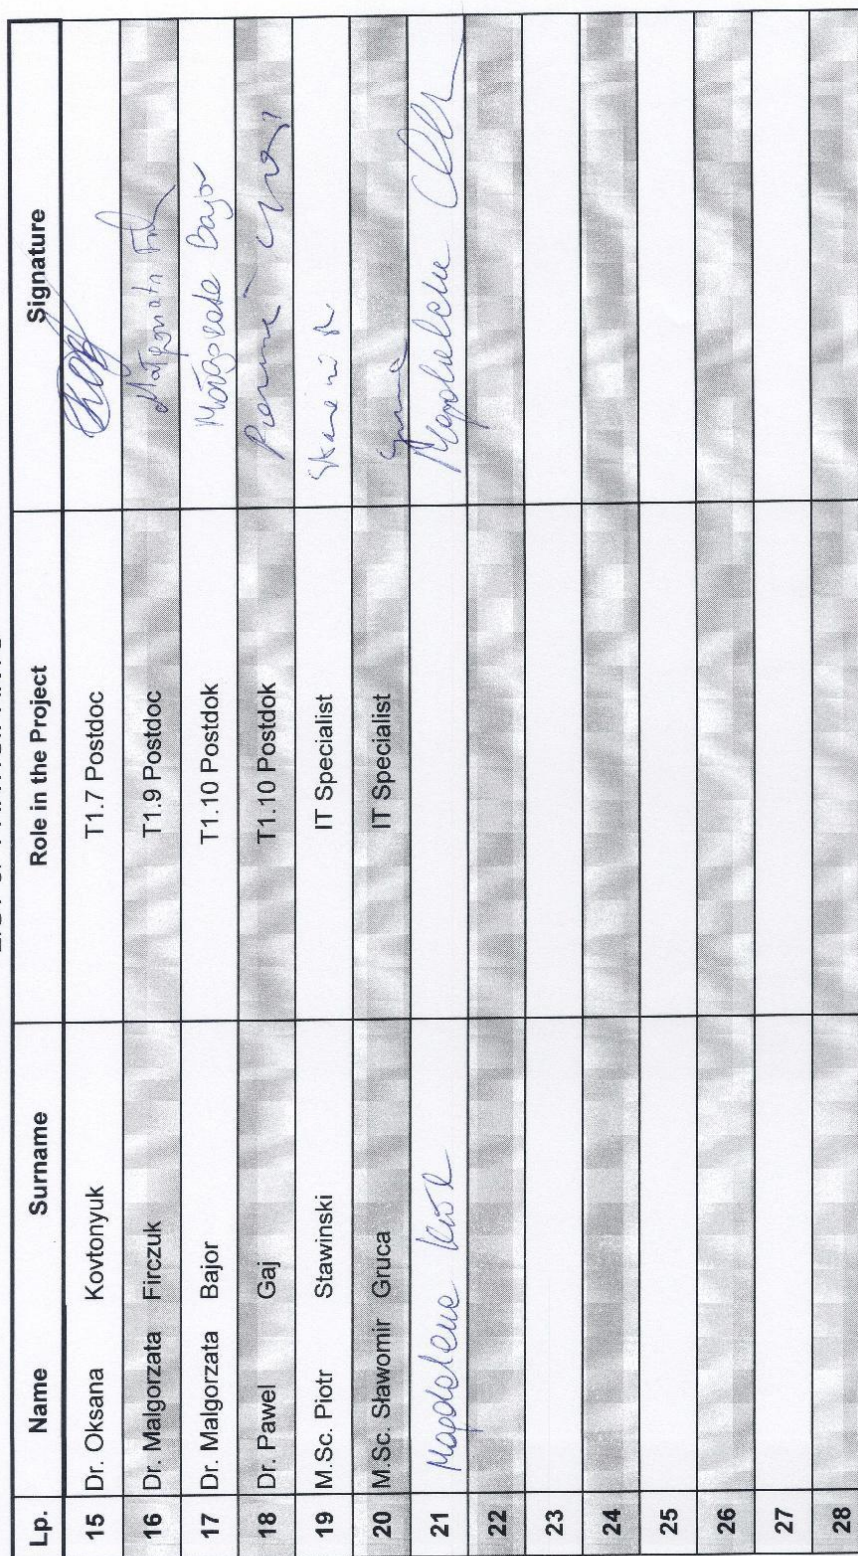 Lp. Name Surname Role in the Project Signature
15 Dr. Oksana Kovtonyuk T1.7 Postdoc
16 Dr. Malgorzata Firczuk T1.9 Postdoc Małgorzata
17 Dr. Malgorzata Bajor T1.10 Postdok Małgorzata Bajor
18 Dr. Pawel Gaj T1.10 Postdok
19 M.Sc. Piotr Stawinski IT Specialist
20 M.Sc. Sławomir Gruca IT Specialist
21 Magdalena Król Magdalena
22
23
24
25
26
27
28